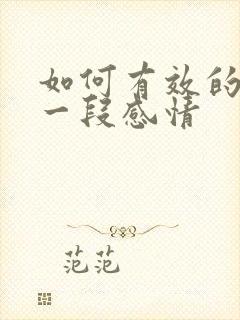 如何有效的
一段感情
范范